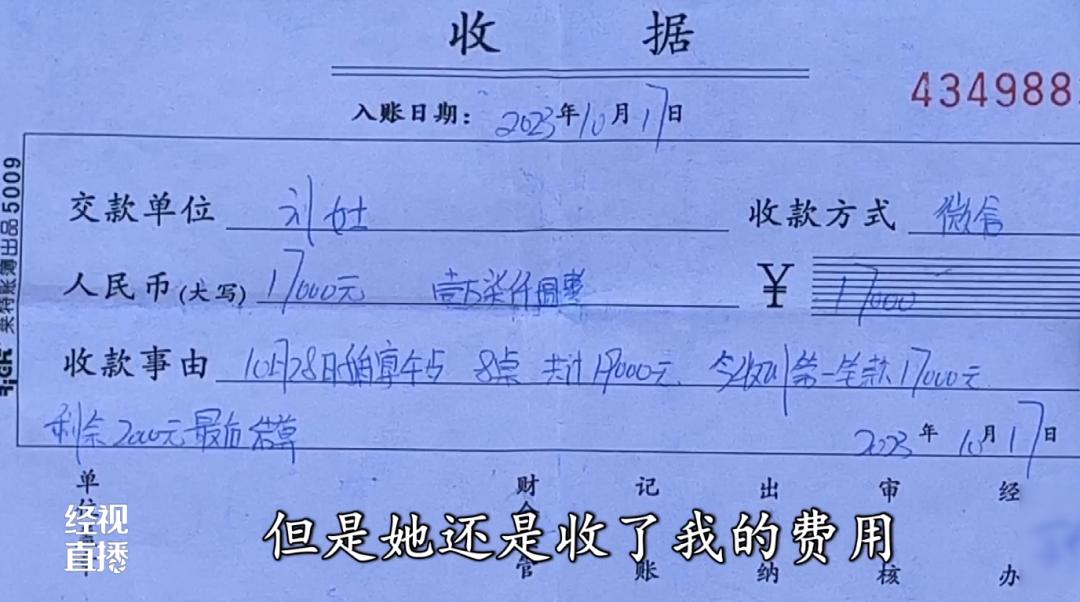 收 据
434988
入账日期：2023年10月17日
莱特账簿出品5009
交款单位 刘女士 收款方式 微信
人民币(大写) 17000元 壹万柒仟圆整 ￥ 17000
收款事由 10月28日 午 8桌 共计19000元 今收到第一笔款17000元
剩余2000元最后结算
2023年10月17日
单位 财 记 出 审 经
管 账 纳 核 办
经视直播
但是她还是收了我的费用